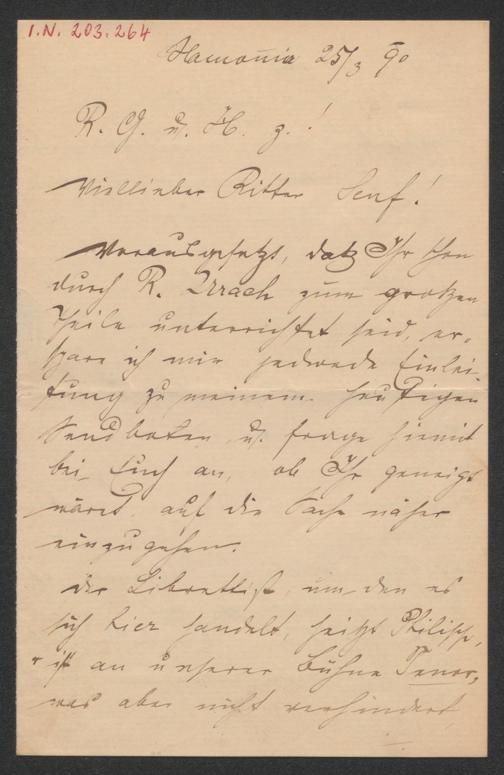 I.N. 203.264
Hamonia 25/3 90
R. G. u. H. z.!
Viellieber Ritter Senf!
Vorausgesetzt, datz Ihr schon
durch R. Urach zum grotzen
Theile unterrichtet seid, er-
spare ich mir jedwede Einlei-
tung zu meinem heutigen
Sendboten u. frage hiemit
bei Euch an, ob Ihr geneigt
wäret, auf die Sache näher
einzugehen.
Der Librettist, um den es
sich hier handelt, heitzt Philipp,
ist an unserer Bühne Tenor,
was aber nicht verhindert,